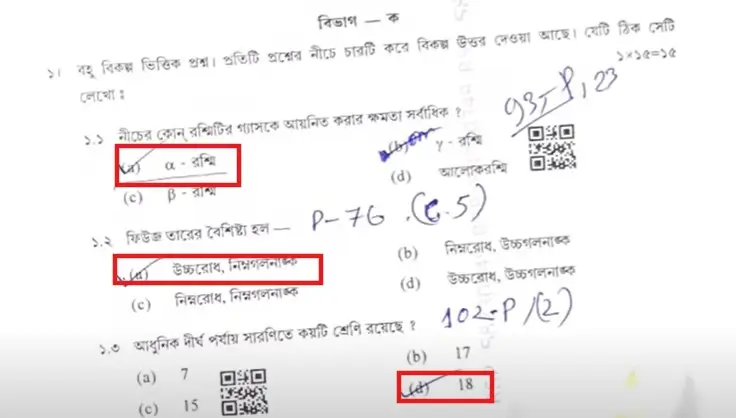 বিভাগ — ক
১। বহু বিকল্প ভিত্তিক প্রশ্ন। প্রতিটি প্রশ্নের নীচে চারটি করে বিকল্প উত্তর দেওয়া আছে। যেটি ঠিক সেটি
লেখো : ১×১৫=১৫
১.১ নীচের কোন্ রশ্মিটির গ্যাসকে আয়নিত করার ক্ষমতা সর্বাধিক ? 93-P, 23
(a) α - রশ্মি (b) γ - রশ্মি
(c) β - রশ্মি (d) আলোকরশ্মি
১.২ ফিউজ তারের বৈশিষ্ট্য হল — P-76 .(C.5)
(a) উচ্চরোধ, নিম্নগলনাঙ্ক (b) নিম্নরোধ, উচ্চগলনাঙ্ক
(c) নিম্নরোধ, নিম্নগলনাঙ্ক (d) উচ্চরোধ, উচ্চগলনাঙ্ক
১.৩ আধুনিক দীর্ঘ পর্যায় সারণিতে কয়টি শ্রেণি রয়েছে ? 102-P/(2)
(a) 7 (b) 17
(c) 15 (d) 18